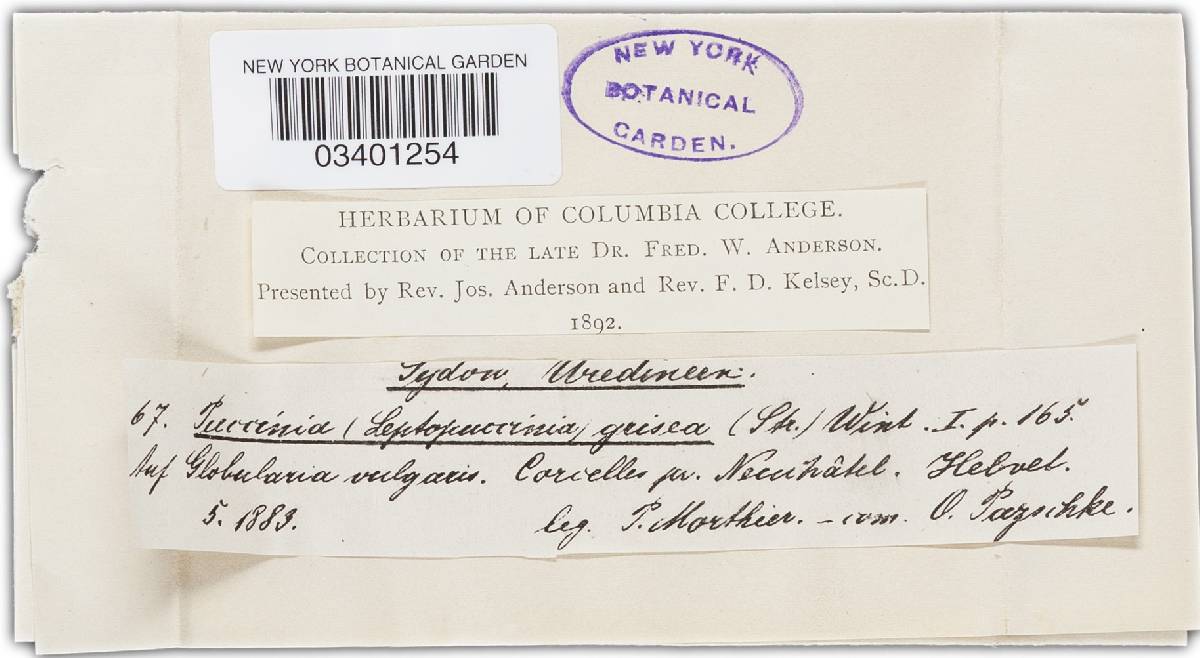 NEW YORK BOTANICAL GARDEN
03401254
NEW YORK
BOTANICAL
GARDEN.
HERBARIUM OF COLUMBIA COLLEGE.
COLLECTION OF THE LATE DR. FRED. W. ANDERSON.
Presented by Rev. Jos. Anderson and Rev. F. D. Kelsey, Sc.D.
1892.
Sydow, Uredineen.
67. Puccinia (Leptopuccinia) grisea (Str.) Wint. I. p. 165.
Auf Globularia vulgaris. Corcelles pr. Neuchâtel. Helvet.
5. 1883. leg. P. Morthier. – com. O. Pazschke.